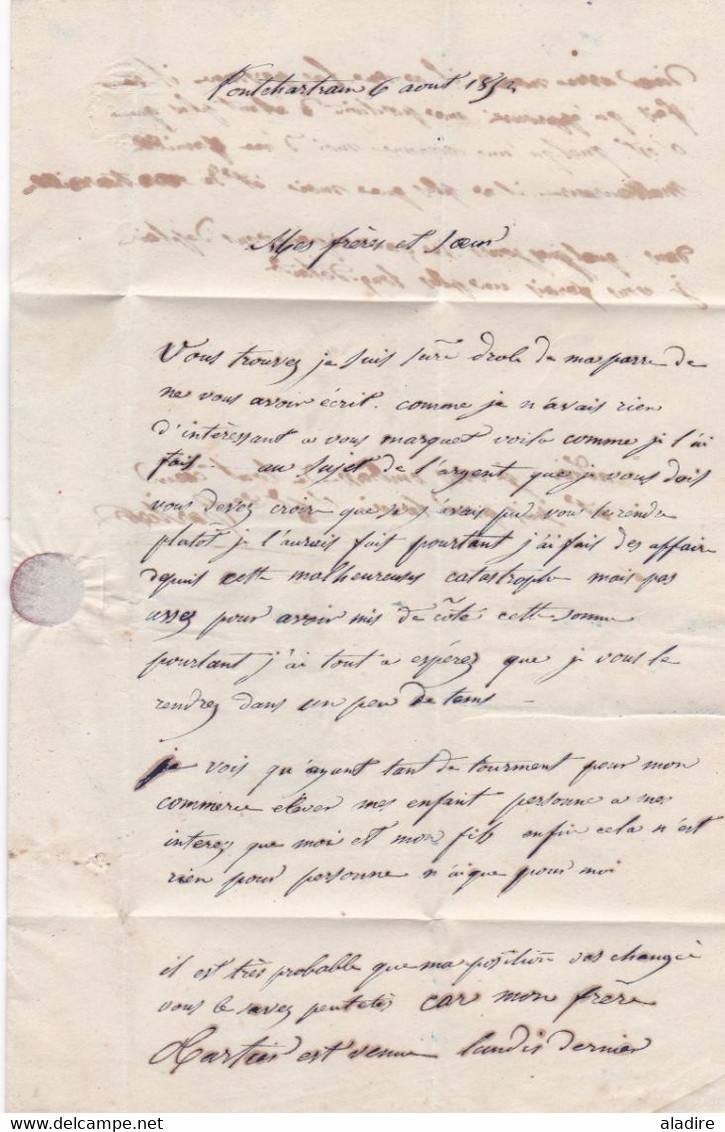 Pontchartrain 6 aout 1852
Mes frères et Soeur
Vous trouvez je suis sûre drole de ma parre de
ne vous avoir écrit. comme je n'avais rien
d'intèressant a vous marquet voila comme je l'ai
fait - au sujet de l'argent que je vous dois
vous devez croire que si j'avais pu vous le rendre
platôt je l'aurais fait pourtant j'ai fait des affaire
depuis cette malheureuses catastrophe mais pas
assez pour avoir mis de côté cette somme
pourtant j'ai tout a espérez que je vous le
rendrez dans un peu de tems -
je vois qu'ayant tant de tourment pour mon
commerce élever mes enfant personne a mes
interez que moi et mon fils enfin cela n'est
rien pour personne n'aique pour moi
il est très probable que ma position vas changée
vous le savez peutetès car mon frère
est venue Lundis dernier
delcampe.net
aladire